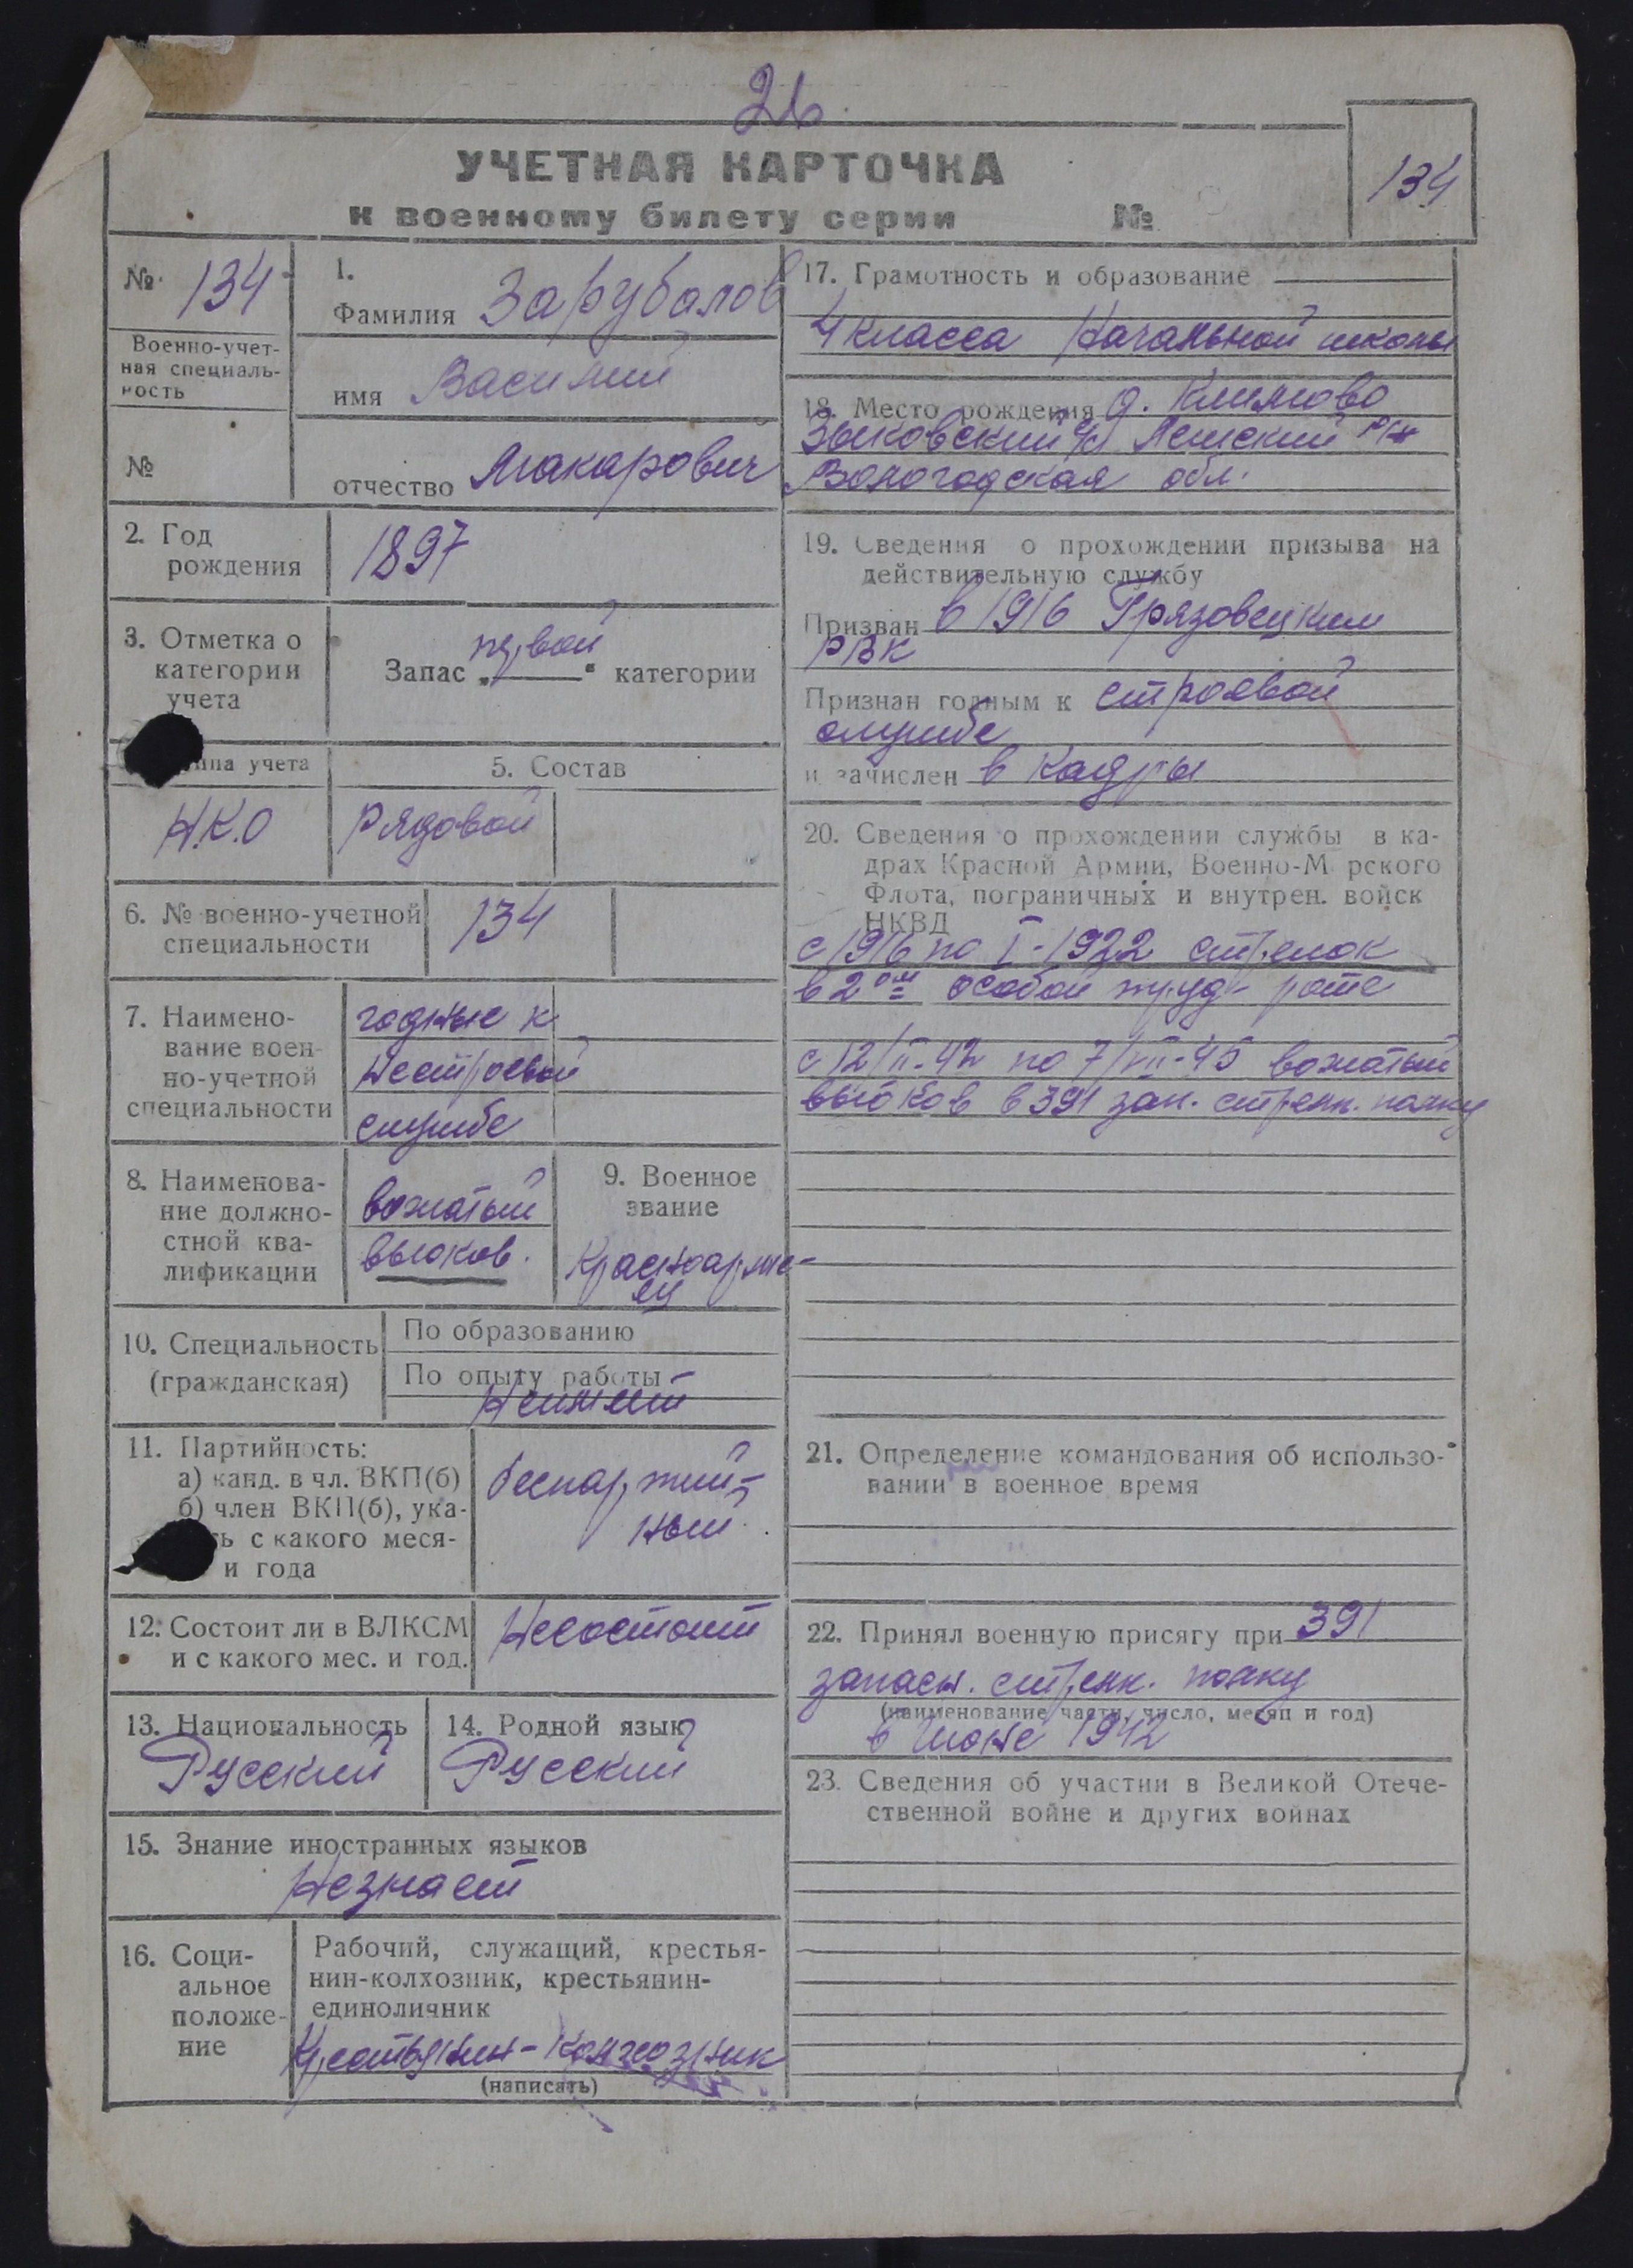 26.
УЧЕТНАЯ КАРТОЧКА
к военному билету серии №
134
№ 134
Военно-учет-
ная специаль-
ность
№
1.
Фамилия Зарубалов
имя Василий
отчество Макарович
2. Год
рождения
1897
3. Отметка о
категории
учета
Запас „первой“ категории
ппа учета
Н.К.О
5. Состав
Рядовой
6. № военно-учетной
специальности
134
7. Наимено-
вание воен-
но-учетной
специальности
годные к
нестроевой
службе
8. Наименова-
ние должно-
стной ква-
лификации
вожатый
вьюков.
9. Военное
звание
Красноарме-
ец
10. Специальность
(гражданская)
По образованию
По опыту работы
Неимеет
11. Партийность:
а) канд. в чл. ВКП(б)
б) член ВКП(б), ука-
ть с какого меся-
и года
беспартий-
ный.
12. Состоит ли в ВЛКСМ
и с какого мес. и год.
Несостоит
13. Национальность
Русский
14. Родной язык
Русский
15. Знание иностранных языков
Незнает
16. Соци-
альное
положе-
ние
Рабочий, служащий, крестья-
нин-колхозник, крестьянин-
единоличник
Крестьянин-Колхозник
(написать)
17. Грамотность и образование
4 класса Начальной школы
18. Место рождения д. Климово
Зыковский с/с Лешский р-н
Вологодская обл.
19. Сведения о прохождении призыва на
действительную службу
Призван в 1916 Грязовецким
РВК
Признан годным к строевой
службе
и зачислен в кадры
20. Сведения о прохождении службы в ка-
драх Красной Армии, Военно-М рского
Флота, пограничных и внутрен. войск
НКВД
с 1916 по I-1922 стрелок
в 2ой особой труд- роте
с 12/II-42 по 7/VII-45 вожатый
вьюков в 391 зап. стрелк. полку
21. Определение командования об использо-
вании в военное время
22. Принял военную присягу при 391
запасн. стрелк. полку
(наименование части, число, месяц и год)
в июне 1942
23. Сведения об участии в Великой Отече-
ственной войне и других войнах